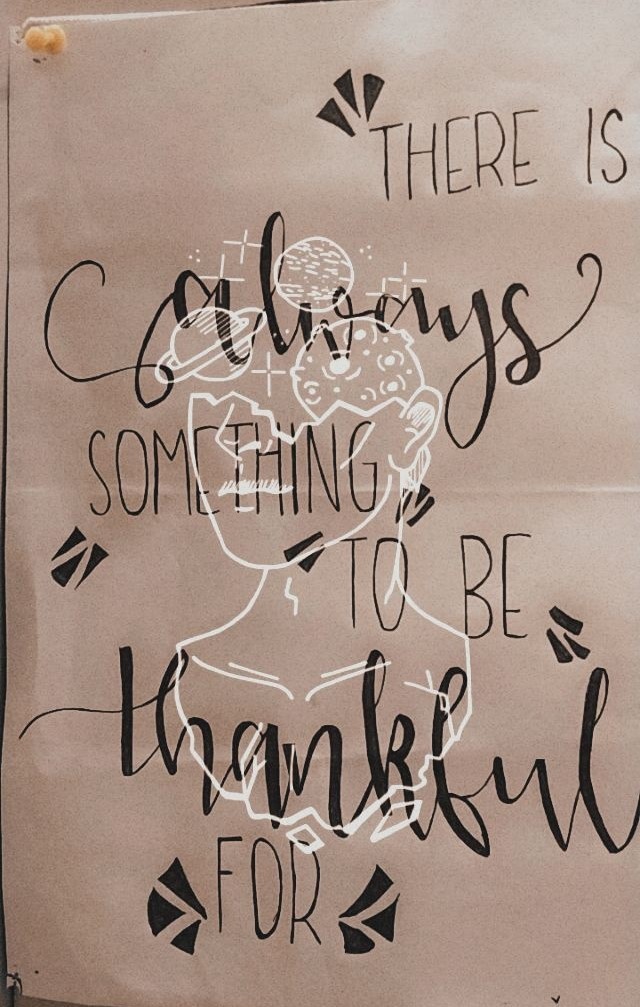 THERE IS
always
SOMETHING
TO BE
thankful
FOR